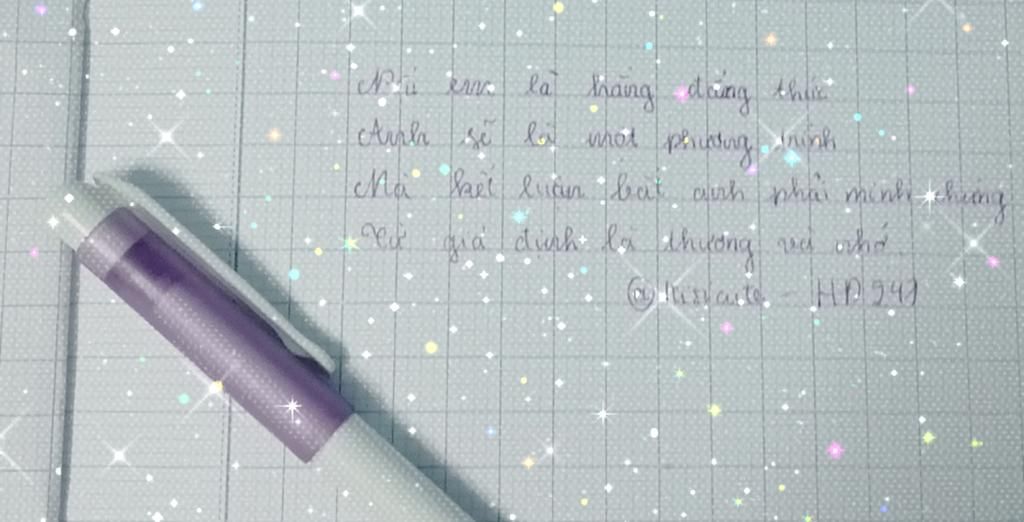 Nếu em là hằng đẳng thức
Anh sẽ là một phương trình
Mà kết luận bắt anh phải minh chứng
Từ giả định là thương và nhớ
HD249